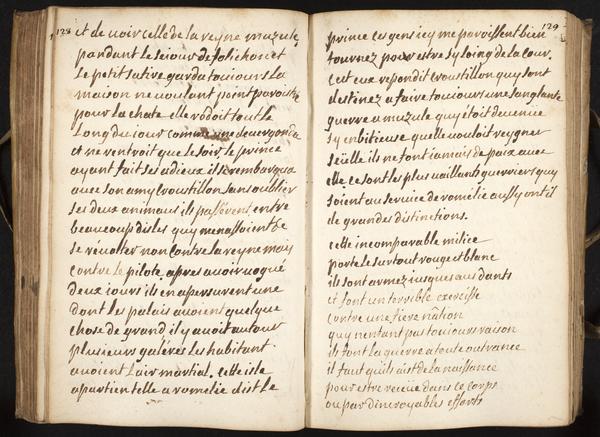 128
et de uoir celle de la reyne muzule,
pandant le seiour de folichon et
le petit satire garda toujours la
maison ne uoulant point paroistre
pour la chate elle rodoit tout le
long du iour comme une deuergonda
et ne rentroit que le soir, le prince
ayant fait ses adieux il s'embarqua
auec son amy croustillon sans oublier
ses deux animaus ils passérent entre
beaucoup disles quy menassoient de
se réuolter non contre la reyne mais
contre le pilote. apres auoir uogué
deux jours ils en apersurent une
dont les palais auoient quelque
chose de grand il y auoit autour
plusieurs galéres les habitant
auoient lair martial. cette isle
apartient elle a romélie dist le
129
prince ces gens icy me paroissent bien
tournez pour estre sy loing de la cour.
ceut eux repondit croustillon quy sont
destinez a faire toujours une sanglante
guerre a muzule quy étoit deuenue
sy enbitieuse quelle uouloit reygner
seülle ils ne font iamais de paix auec
elle. ce sont les plus uaillants guerriers quy
soient au seruice de romélie aussy ont il
de grandes distinctions.
cette incomparable milice
porte le surtout rouge et blanc
ils sont armez iusques aus dants
et font un terrible exercisse
contre une fiere nâtion
quy nentant pas toujours raison
ils font la guerre a toute outrance
il faut quils aist de la naissance
pour estre recüe dans ce corps
ou par dincroyables efforts